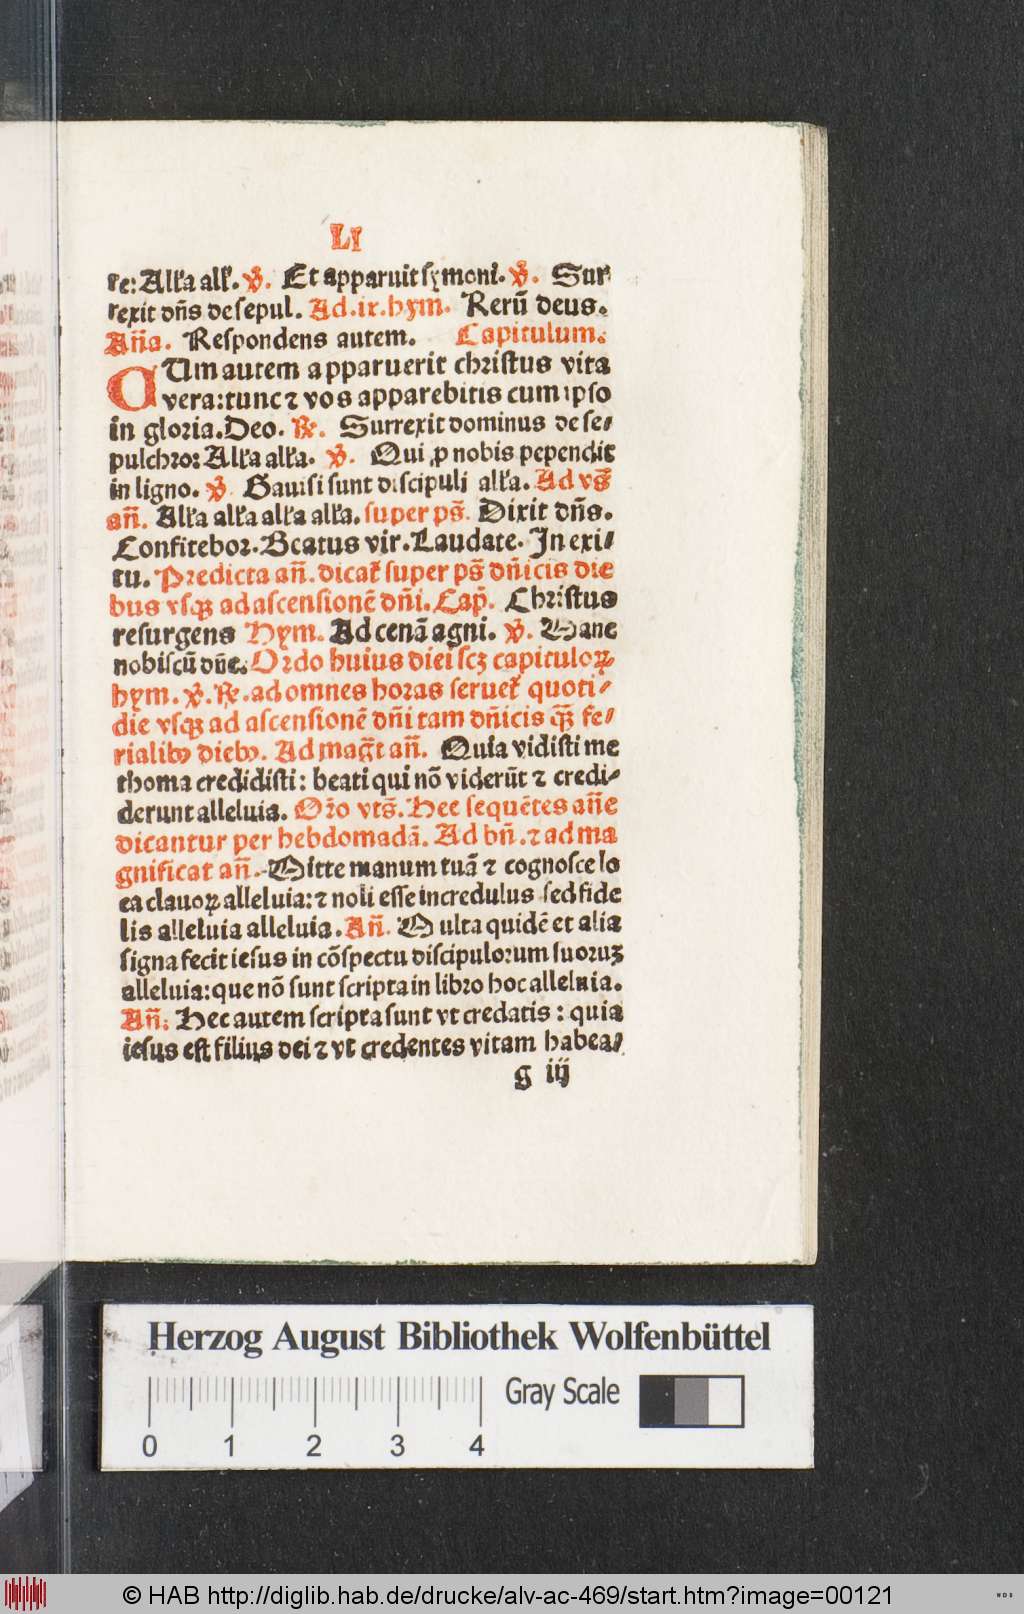 LI
re: All'a all'. ℣. Et apparuit symoni. ℣. Sur
rexit dn̄s de sepul. Ad .ix. hym. Rerū deus.
An̄a. Respondens autem. Capitulum.
CUm autem apparuerit christus vita
vera: tunc ⁊ vos apparebitis cum ipso
in gloria. Deo. ℟. Surrexit dominus de se⸗
pulchro: All'a all'a. ℣. Qui ꝓ nobis pependit
in ligno. ℣. Gauisi sunt discipuli all'a. Ad vs̄
an̄. All'a all'a all'a all'a. super ps̄. Dixit dn̄s.
Confitebor. Beatus vir. Laudate. In exi⸗
tu. Predicta an̄. dicat' super ps̄ dn̄icis die
bus vsqꝫ ad ascensionē dn̄i. Cap̄. Christus
resurgens Hym. Ad cenā agni. ℣. Mane
nobiscū dn̄e. Ordo huius diei scꝫ capituloꝝ
hym. ℣. ℟. ad omnes horas seruet' quoti⸗
die vsqꝫ ad ascensionē dn̄i tam dn̄icis qꝫ̄ fe⸗
rialibꝰ diebꝰ. Ad maḡt an̄. Quia vidisti me
thoma credidisti: beati qui nō viderūt ⁊ credi⸗
derunt alleluia. Or̄o vts̄. Hec sequētes an̄e
dicantur per hebdomadā. Ad bn̄. ⁊ ad ma
gnificat an̄. Mitte manum tuā ⁊ cognosce lo
ca clauoꝝ alleluia: ⁊ noli esse incredulus sed fide
lis alleluia alleluia. An̄. Multa quidē et alia
signa fecit iesus in cōspectu discipulorum suoruꝫ
alleluia: que nō sunt scripta in libro hoc alleluia.
An̄: Hec autem scripta sunt vt credatis: quia
iesus est filius dei ⁊ vt credentes vitam habea⸗
g iij
Herzog August Bibliothek Wolfenbüttel
Gray Scale
0 1 2 3 4
© HAB http://diglib.hab.de/drucke/alv-ac-469/start.htm?image=00121